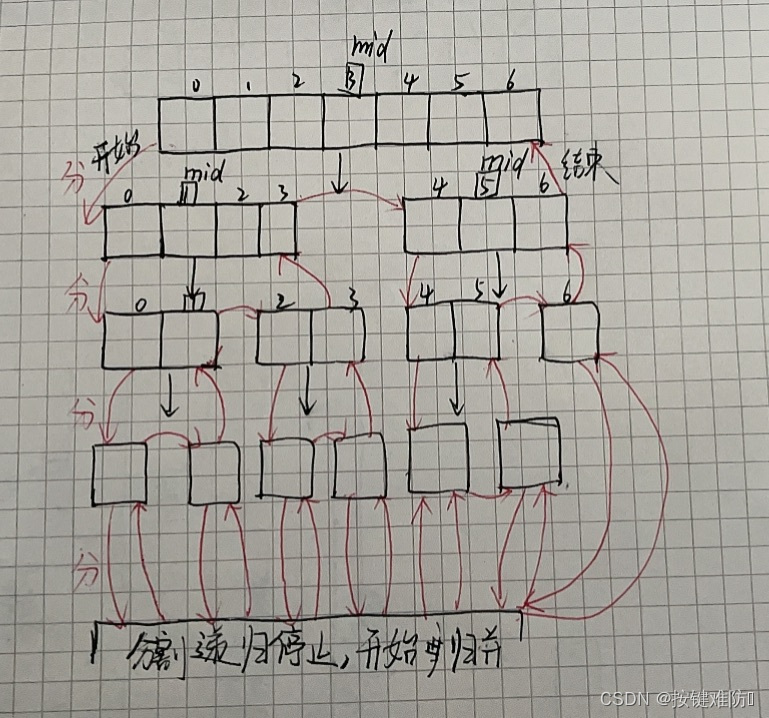 mid
0 1 2 3 4 5 6
分 开始 结束
mid mid
0 1 2 3 4 5 6
分
0 2 3 4 5 6
分
分
分割递归停止,开始归并
CSDN @按键难防